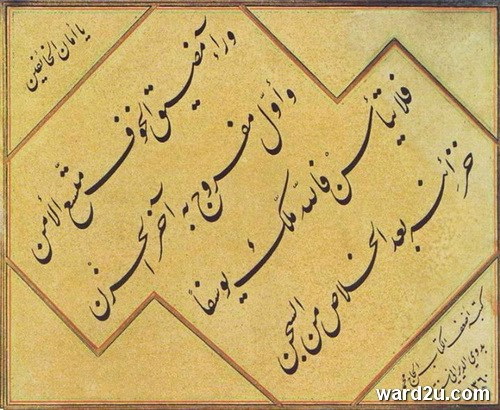 يا أمان الخائفين
وراء مضيق الخوف متسع الأمن
وأول مفروح به آخر الحزن
فلا تيأسن فالله ملك يوسفاً
خزائنه بعد الخلاص من السجن
كتبه اضعف الكتاب
بدوي الديراني
www.ward2u.com